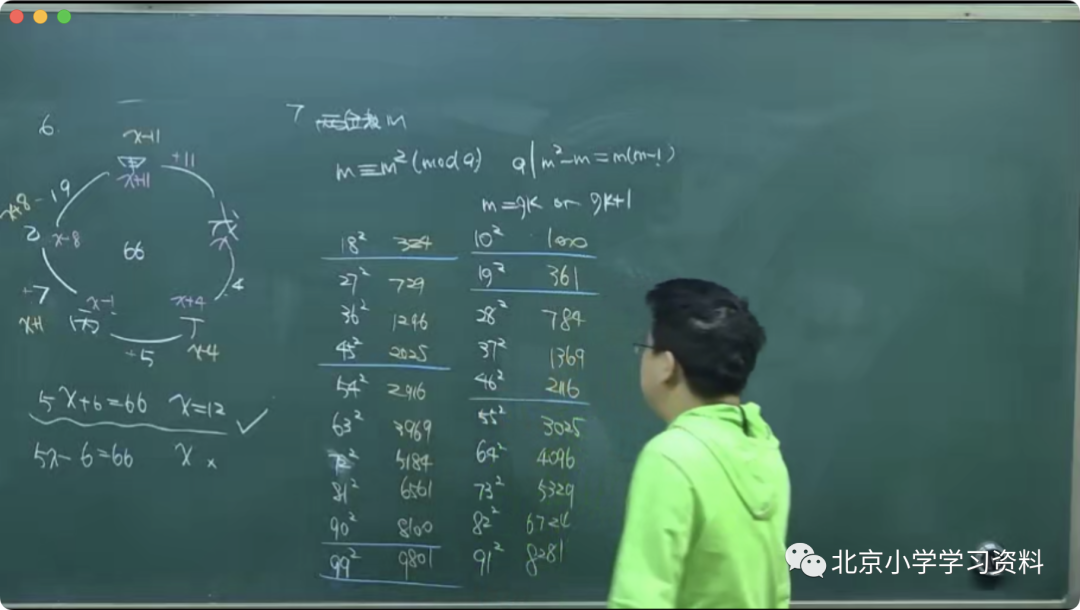 6.
x-11
x+11
+11
x+8
-19
x-8
x
66
+7
x-1
x+4
4
x+1
T
x-4
+5
5x+6=66 x=12 ✓
5x-6=66 x ×
7 m
m≡m²(mod 9) 9|m²-m=m(m-1)
m=9k or 9k+1
18² 324 10² 100
27² 729 19² 361
36² 1296 28² 784
45² 2025 37² 1369
54² 2916 46² 2116
63² 3969 55² 3025
72² 5184 64² 4096
81² 6561 73² 5329
90² 8100 82² 6724
99² 9801 91² 8281
北京小学学习资料